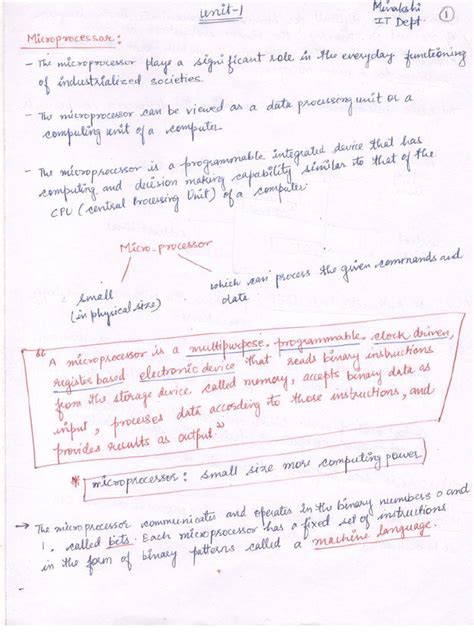 Unit-1
Minakshi
IT Dept.
1
Microprocessor:
- The microprocessor plays a significant role in the everyday functioning
of industrialized societies.
- The microprocessor can be viewed as a data processing unit or a
computing unit of a computer.
- The microprocessor is a programmable integrated device that has
computing and decision making capability similar to that of the
CPU (central Processing Unit) of a computer.
Micro-processor
small
(in physical size)
which can process the given commands and
data
" A microprocessor is a multipurpose, programmable, clock driven,
register based electronic device that reads binary instructions
from the storage device called memory, accepts binary data as
input, processes data according to those instructions, and
provides results as output."
* microprocessor: small size more computing power
→ The microprocessor communicates and operates in the binary numbers 0 and
1, called bits. Each microprocessor has a fixed set of instructions
in the form of binary patterns called a machine language.